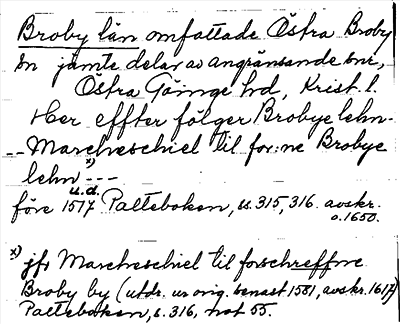 Broby län omfattade Östra Broby
sn jämte delar av angränsande snr,
Östra Göinge hd, Krist. l.
Her effter fölger Brobye lehn -
-- Marcheschiel til for:ne Brobye
lehn x) ---
u.d.
före 1517 Paltebokon, s. 315, 316. avskr.
o. 1650.
x) jfr Marcheschiel til forschreffne
Broby by (utds. ur orig. senast 1581, avskr. 1617)
Paltebokon, s. 316, not 55.